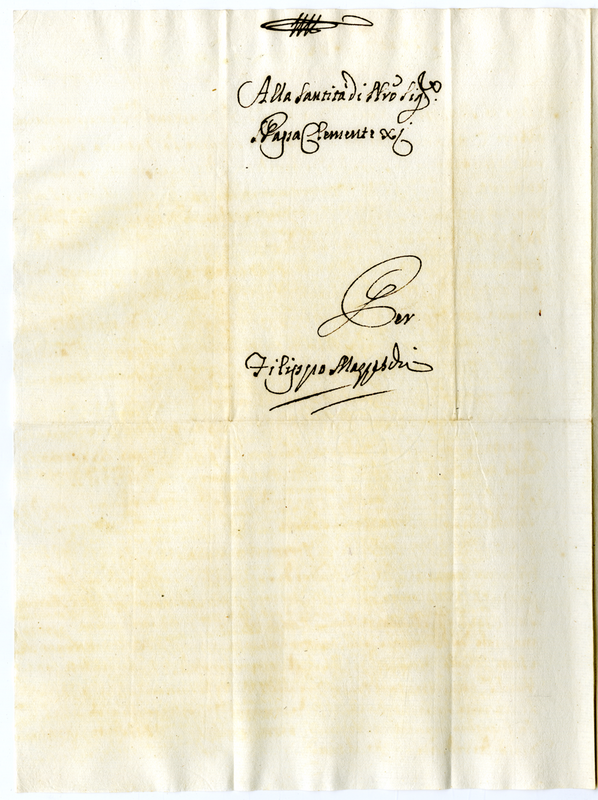 Alla Santità di Nrõ Sig.re
Papa Clemente XI
Per
Filippo